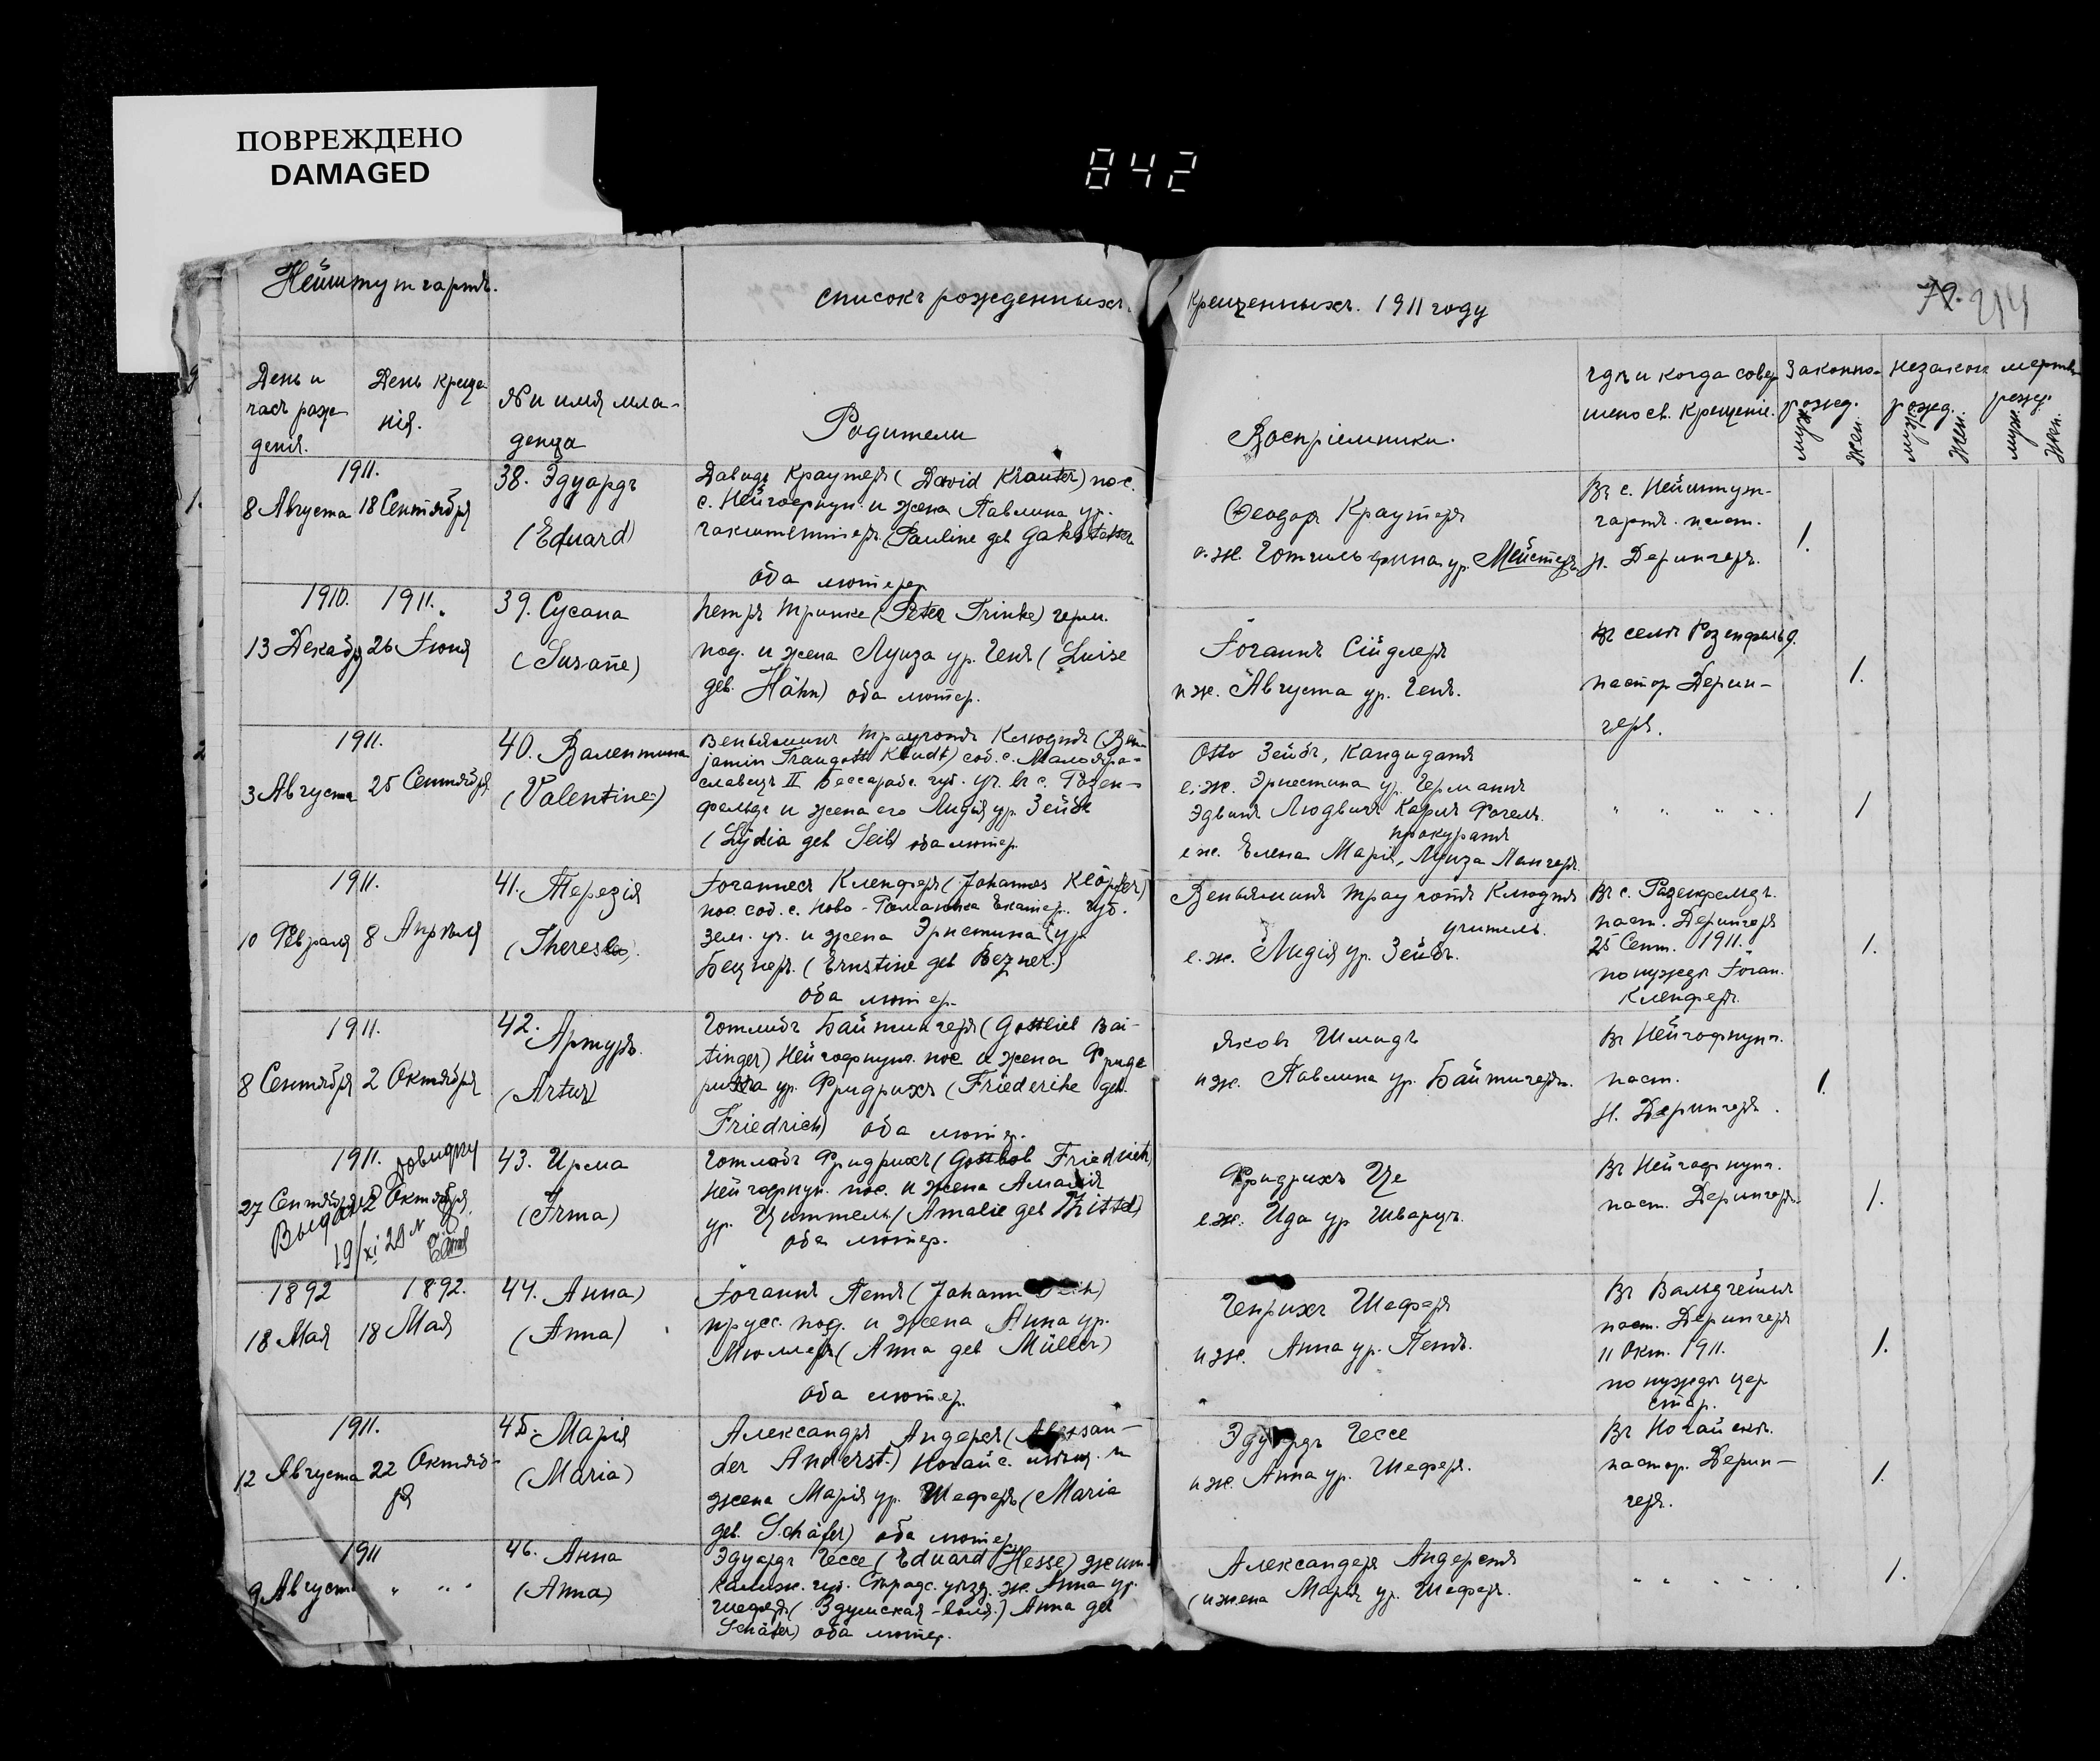 ПОВРЕЖДЕНО
DAMAGED
842
Нейштутгартъ.
списокъ рожденныхъ,
крещенныхъ. 1911 году
79. 214
День и
часъ рож-
денія.
День креще-
нія.
№ и имя мла-
денца
Родители
Воспріемники.
гдѣ и когда совер
шено св. крещеніе.
Законно-
рожд.
муж.
жен.
незакон
рожд.
муж.
жен.
мертв
рожд.
муж.
жен.
1911.
8 Августа 18 Сентября
38. Эдуардъ
(Eduard)
Давидъ Краутеръ (David Krauter) пос.
с. Нейгофнун. и жена Павлина ур.
(Pauline geb
оба лютер.
Феодоръ Краутеръ
ур. Мейстеръ
Въ с. Нейштут-
гартъ. паст.
Н. Дерингеръ.
1.
1910. 1911.
13 Декабр 26 Іюня
39. Сусана
(Susañe)
Петръ Тринке (Peter Trinke) герм.
под. и жена Луиза ур. Генъ (Luise
geb. Hähn) оба лютер.
Іоганнъ Сійдлеръ
и ж. Августа ур. Генъ.
Въ селѣ Розенфельд.
пастор Дерин-
геръ.
1.
1911.
3 Августа 25 Сентября
40. Валентина
(Valentine)
Веньяминъ Трауготтъ Клюдтъ (Ben-
jamin Traugott Kludt) соб. с. Малояро-
славецъ II Бессараб. губ. уч. въ с. Розен-
фельдъ и жена его Лидія ур. Зейбъ
(Lydia geb Seib) оба лютер.
Otto Зейбъ, кандидатъ
е. ж. Эрнестина ур. Германъ
Эдвинъ Людвигъ Карлъ Фогель.
прокуратъ
е ж. Елена Марія, Луиза Лангеръ
" " " "
1
1911.
10 Февраля 8 Апрѣля
41. Терезія
(Therese)
Іоганнесъ Клепферъ (Johannes Klöpfer)
пос. соб. с. Ново-Романовка Екатер. губ.
зем. уч. и жена Эрнстина ур.
Бецнеръ. (Ernstine geb Bezner.)
оба лютер.
Веньяминъ Трауготтъ Клюдтъ
учитель.
е. ж. Лидія ур. Зейбъ.
Въ с. Розенфельдъ.
паст. Дерингеръ
25 Сент. 1911.
по нуждѣ Іоган.
Клепферъ.
1.
1911.
8 Сентября 2 Октября
42. Артуръ.
(Artur)
Готлибъ Байтингеръ (Gottlieb Bai-
tinger) Нейгофнунг. пос и жена Фриде
рика ур. Фридрихъ (Friederike geb
Friedrich) оба лютер.
Яковъ Шмидъ
и ж. Павлина ур. Байтингеръ.
Въ Нейгофнунг.
паст.
Н. Дерингеръ.
1.
1911.
27 Сентября 2 Октября
19/XI 29 г
43. Ирма
(Irma)
Готлобъ Фридрихъ (Gottlob Friedrich)
Нейгофнун. пос. и жена Амалія
ур. Циттель (Amalie geb Zittel)
оба лютер.
Фридрихъ Це
е. ж. Ида ур Шварцъ.
Въ Нейгофнунг.
паст. Дерингеръ.
1.
1892 1892.
18 Мая 18 Мая
44. Анна
(Anna)
Іоганнъ (Johann
прусс. под. и жена Анна ур.
Мюллеръ (Anna geb Müller)
оба лютер.
Генрихъ Шеферъ
и ж. Анна ур.
Въ Вальдгеймъ
паст. Дерингеръ
11 Окт. 1911.
по нуждѣ цер
стар.
1.
1911.
12 Августа 22 Октяб-
ря
45. Марія
(Maria)
Александръ (Alexan-
der Anderst.) Ногайс. и
жена Марія ур. Шеферъ (Maria
geb. Schäfer) оба лютер.
Эдуардъ Гессе
и ж. Анна ур. Шеферъ.
Въ Ногайскъ.
пастор. Дерин-
геръ.
1.
1911
9 Август " " "
46. Анна
(Anna)
Эдуардъ Гессе (Eduard Hesse) жит.
губ. уѣзд. ж. Анна ур.
Шеферъ ( ) Anna geb
Schäfer) оба лютер.
Александеръ Андерстъ
(и жена Марія ур. Шеферъ.
" " " "
1.